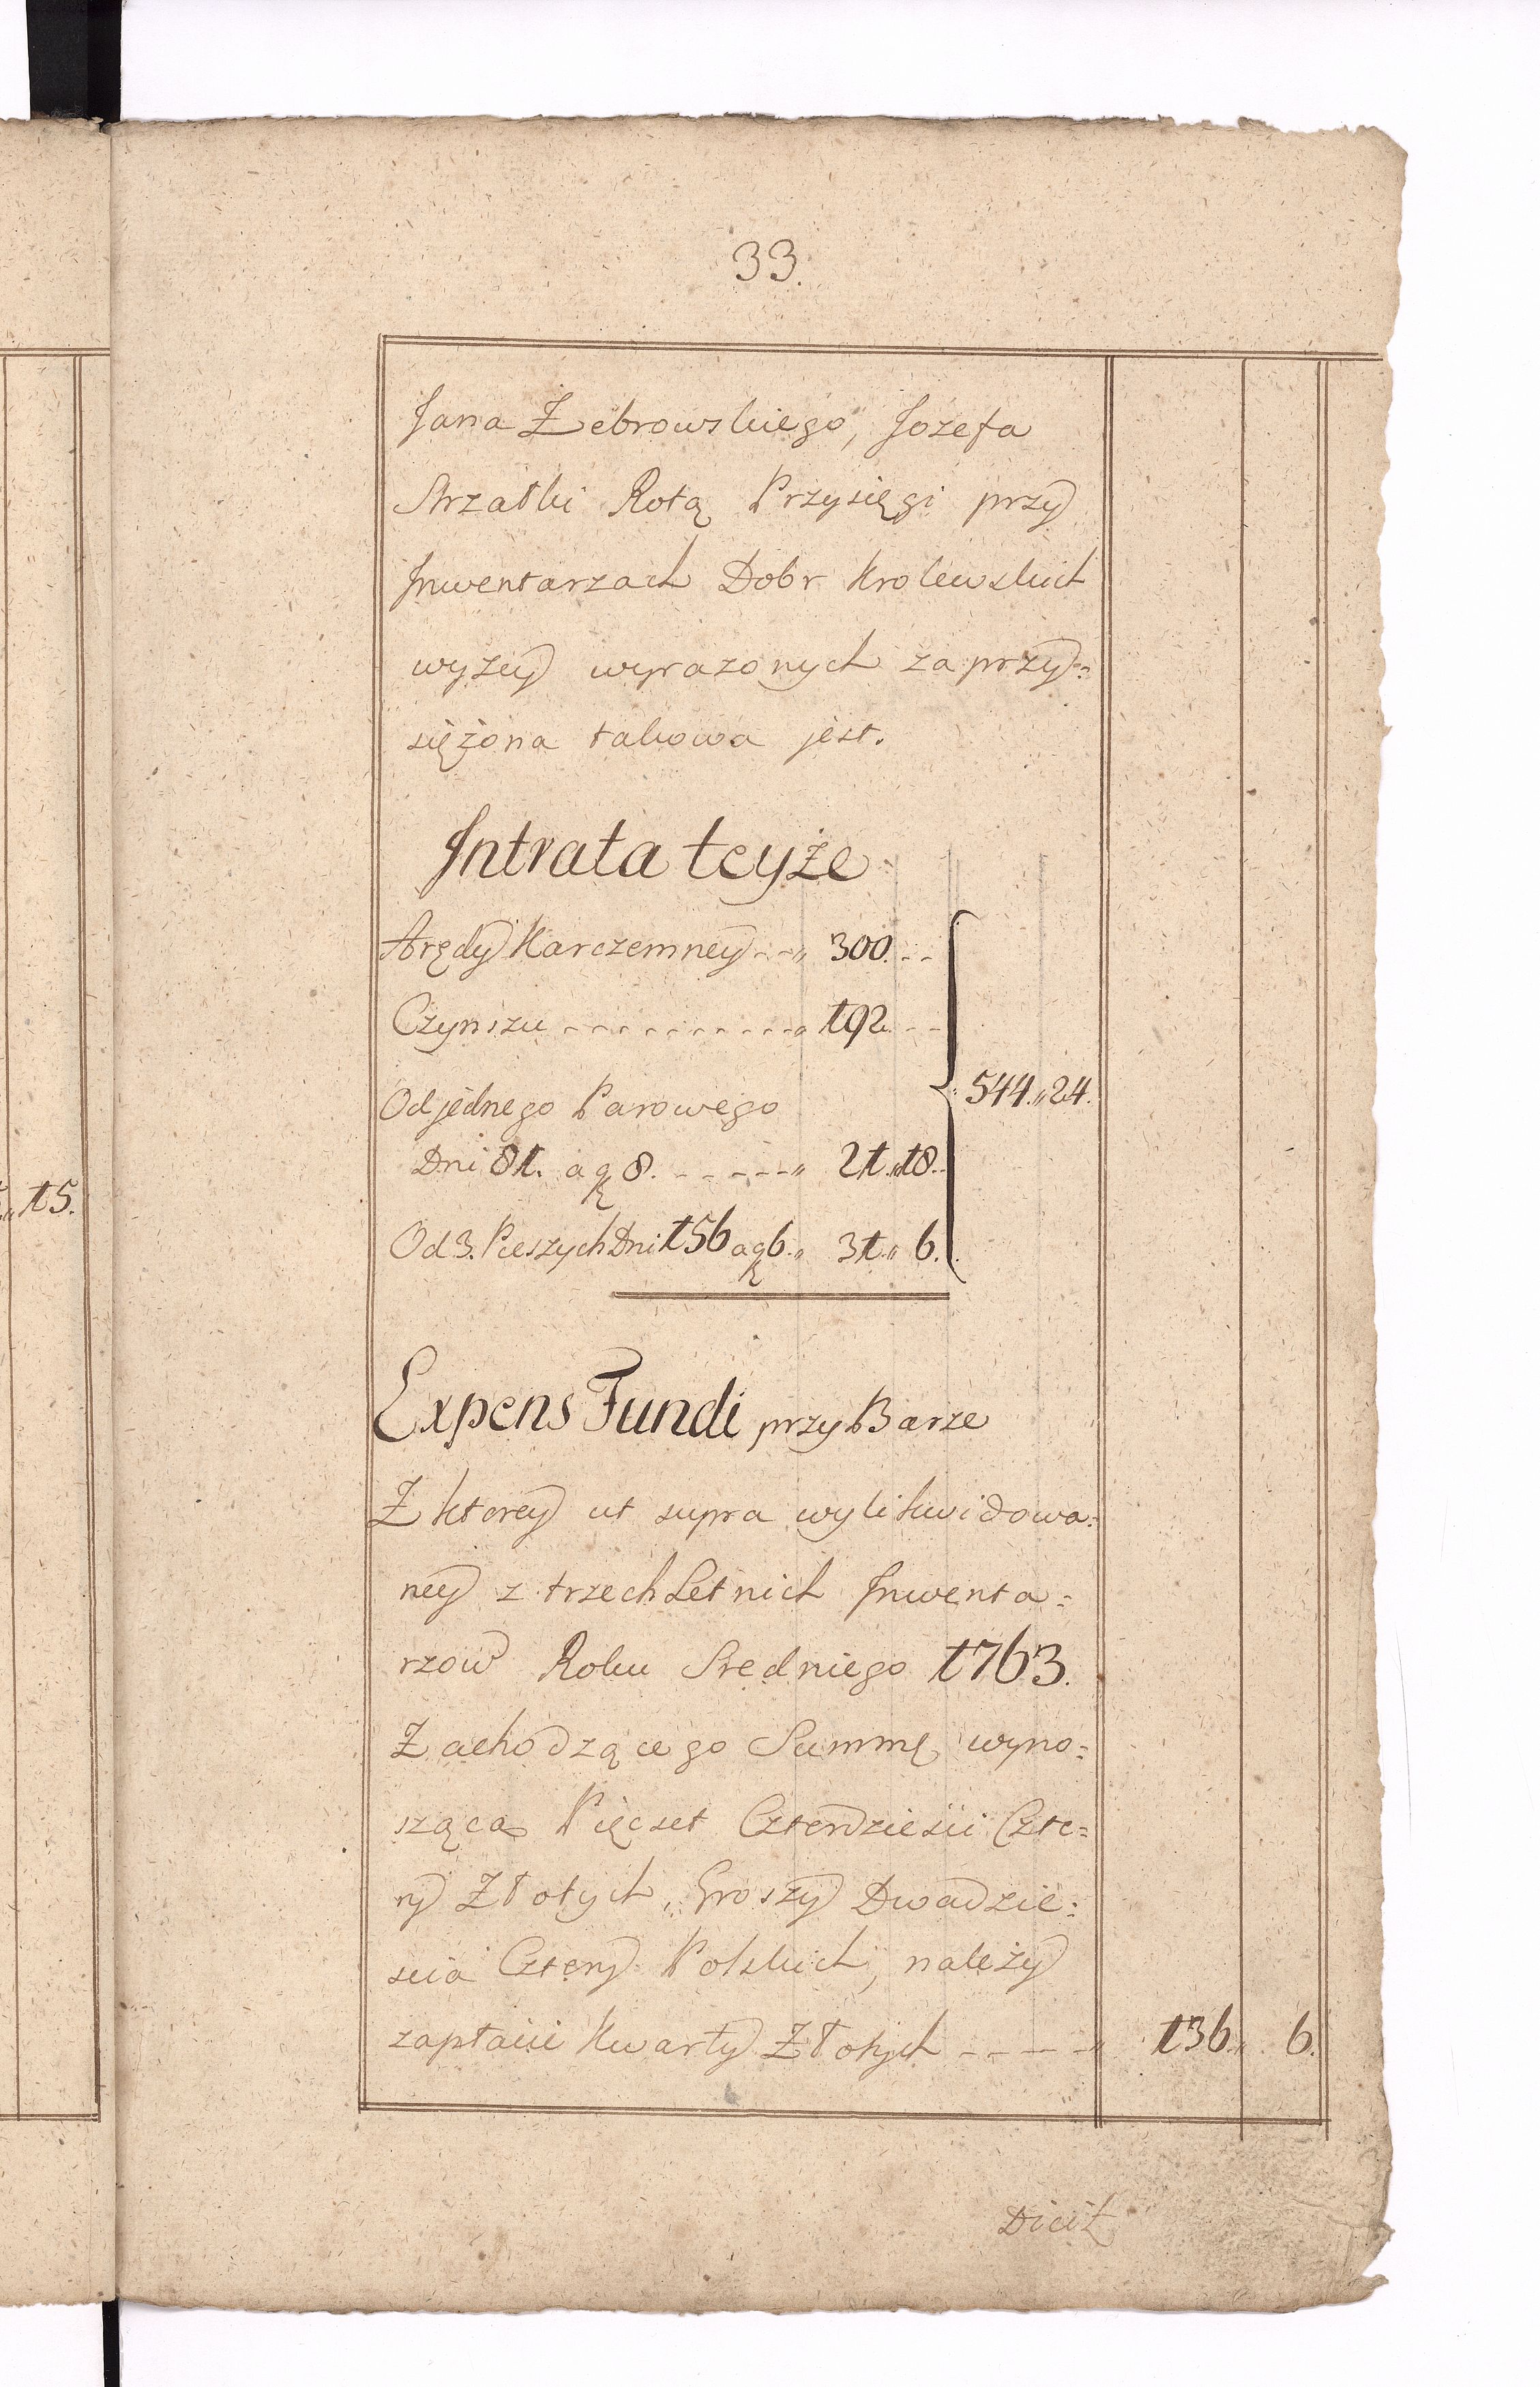 33.
Jana Zebrowskiego, Jozefa
Strzałki Rotą Przysięgi przy
Jnwentarzach Dobr Krolewskich
wyzey wyrazonych zaprzy=
siężona takowa jest.
Jntrata teyże
Arędy Karczemney 300.
Czynszu 192.
Od jednego Parowego
Dni 81. a g 8. 21.,,18.
544.,,24.
Od 3. Pieszych Dni 156 a g 6. 31.,, 6.
Expens Fundi przy Barze
Z ktorey ut supra wylikwidowa=
ney z trzechLetnich Jnwenta=
rzow Roku Sredniego 1763.
Zachodzącego Summę wyno=
szącą Pięcset Czterdziesci Czte=
ry Złotych, Groszy Dwadzie=
scia Cztery Polskich, należy
zapłacić Kwarty Złotych 136.,, 6.
15.